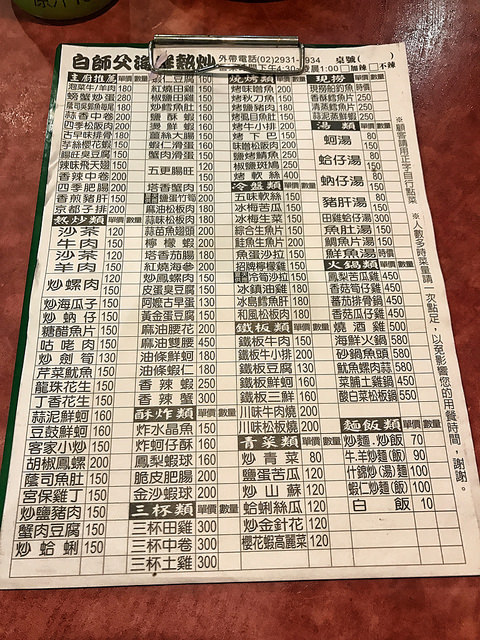 白師父海鮮熱炒 外帶電話(02)2931- 934 桌號( )
下午4:30- 凌晨1:00 □加辣 □不辣
主廚推薦 單價 數量
泡菜牛/羊肉 180
螃蟹炒蛋 280
蒜香中卷 200
四季松阪肉 200
古早味排骨 180
芋絲櫻花蝦 150
腸旺臭豆腐 150
辣味飛天翅 150
香辣中卷 200
四季肥腸 200
香煎豬肝 150
京都子排 200
熱炒類 單價 數量
沙茶
牛肉
沙茶
羊肉
120
150
炒螺肉 120
150
炒海瓜子 150
炒蚋仔 150
糖醋魚片 150
咕咾肉 150
炒劍筍 130
芹菜魷魚 150
龍珠花生 150
丁香花生 150
蒜泥鮮蚵 160
豆鼓鮮蚵 160
客家小炒 150
胡椒鳳螺 200
蔭司魚肚 150
宮保雞丁 150
炒鹽豬肉 150
蟹肉豆腐 150
炒蛤蜊 150
蝦仁豆腐 160
紅燒田雞 150
鹽酥田雞 150
炒鱈魚肚 150
鹽酥蝦 160
燙鮮蝦 160
薑絲大腸 150
蝦仁滑蛋 160
蟹肉滑蛋 150
五更腸旺 120
150
塔香蟹肉 150
鹽蛋竹筍 200
麻油松板肉 180
蒜香松板肉 180
蒜苗魚翅頭 200
檸檬蝦 200
塔香茄腸 180
紅燒海參 200
炒鳳螺肉 150
皮蛋臭豆腐 150
阿嬤古早蛋 130
黃金蛋豆腐 150
麻油腰花 200
麻油雙腰 450
油條鮮蚵 180
油條蝦仁 180
香辣蟹 250
香辣蟹 300
酥炸類 單價 數量
炸水晶魚 150
炸蚵仔酥 160
鳳梨蝦球 180
脆皮肥腸 200
金沙蝦球 200
三杯類 單價 數量
三杯田雞 300
三杯中卷 300
三杯土雞 300
燒烤類 單價 數量
烤味噌魚 200
烤秋刀魚 150
椒鹽豬肉 150
烤虱目魚肚 150
烤牛小排 200
烤下巴 150
味噌松阪肉 200
鹽烤鯖魚 250
椒鹽斑鳩 250
烤軟絲 400
冷盤類 單價 數量
五味軟絲 150
冰梅苦瓜 150
冰梅生菜 150
綜合生魚片 150
鮭魚生魚片 200
魚蛋沙拉 150
招牌檸檬雞 150
冰鎮油雞 180
冰島鱈魚肝 180
和風松板肉 180
鐵板類 單價 數量
鐵板牛肉 150
鐵板牛小排 200
鐵板豆腐 130
鐵板鮮蚵 160
鐵板三鮮 160
川味牛肉燒 200
川味松板燒 200
青菜類 單價 數量
炒青菜 80
鹽蛋苦瓜 120
炒山蘇 120
蛤蜊絲瓜 120
炒金針花 120
櫻花蝦高麗菜 120
現撈 單價 數量
現撈船釣魚 時價
香酥鱈魚片 250
清蒸鱈魚片 250
蒜泥蒸鮮蝦 250
湯類 單價 數量
蚵湯 80
150
蛤仔湯 80
150
蚋仔湯 80
150
豬肝湯 80
150
田雞蛤仔湯 300
魚肚湯 150
鯛魚片湯 150
鮮魚湯 時價
火鍋類 單價 數量
鳳梨苦瓜雞 450
香菇筍仔雞 450
蕃茄排骨鍋 450
香菇瓜仔雞 450
燒酒雞 500
海鮮火鍋 580
砂鍋魚頭 580
魷魚螺肉蒜 580
菜脯土雞鍋 450
酸白菜松板鍋 550
麵飯類 單價 數量
炒麵.炒飯 70
牛.羊炒麵(飯) 90
什錦炒(湯)麵 100
蝦仁炒麵(飯) 100
白飯 10
※顧客請用正字自行點菜
※人數多時菜量請一次點足,以免影響您的用餐時間,謝謝。